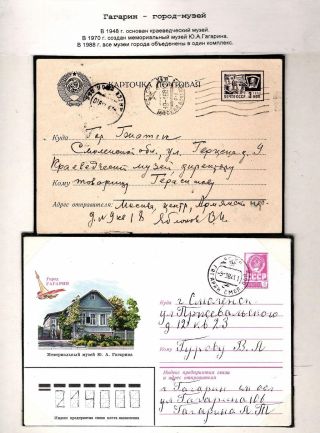 Гагарин - город-музей
В 1948 г. основан краеведческий музей.
В 1970 г. создан мемориальный музей Ю.А.Гагарина.
В 1988 г. все музеи города объеденены в один комплекс.
КАРТОЧКА ПОЧТОВАЯ
Куда Гор. Гжатск
Смоленской обл, ул. Герцена д. 9
Краеведческий музей, директору
Кому товарищу Герасимову
Адрес отправителя: Москва, центр, Армянский пер.
д. № 9 кв 18
Город
ГАГАРИН
СССР
Куда г. Смоленск
ул Пржевальского
д 12 кв 23
Кому Гурову В. А
Мемориальный музей Ю. А. Гагарина
Индекс предприятия связи
и адрес отправителя
г Гагарин см обл
ул Гагарина
Гагарина А Т
214000
Индекс предприятия связи места назначения